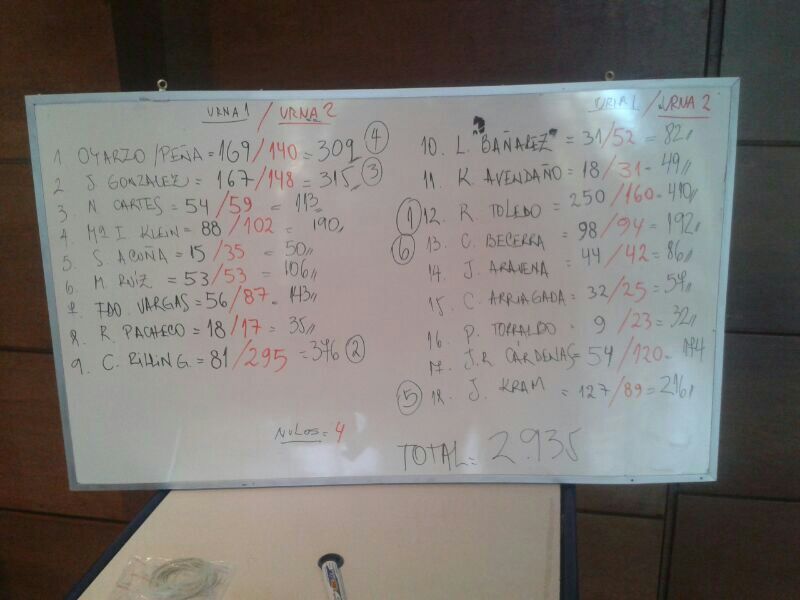 URNA 1 / URNA 2
1. OYARZO / PEÑA = 169/140 = 309 ④
2 J. GONZALEZ = 167/148 = 315,, ③
3. N. CARTES = 54/59 = 113
4. Mª I. KLEIN = 88/102 = 190,,
5. S. ACOÑA = 15/35 = 50,,
6. M. RUÍZ = 53/53 = 106,,
7. FDO. VARGAS = 56/87 = 143,,
8. R. PACHECO = 18/17 = 35,,
9. C. RILLING = 81/295 = 376 ②
NULOS = 4
URNA 1 / URNA 2
10. L. BAÑAREZ = 31/52 = 82,,
11. K. AVENDAÑO = 18/31 = 49,,
① 12. R. TOLEDO = 250/160 = 410,,
⑥ 13. C. BECERRA = 98/94 = 192,,
14. J. ARAVENA = 44/42 = 86,,
15. C. ARRIAGADA = 32/25 = 57,,
16. P. TORRALDO = 9/23 = 32,,
17. J.R. CARDENAS = 54/120 = 174
⑤ 18. J. KRAM = 127/89 = 216,,
TOTAL = 2.935